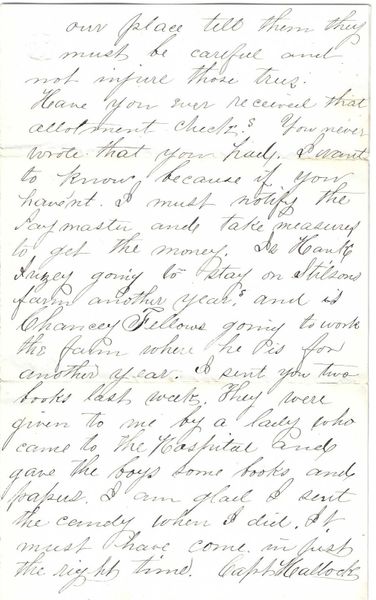 our place tell them they
must be careful and
not injure those trees.
Have you ever received that
allotment check? You never
wrote that you had. I want
to know, because if you
havent. I must notify the
Paymaster and take measures
to get the money. Is Hank
going to stay on Stilsons
farm another year? and is
Chancey Fellows going to work
the farm where he is for
another year. I sent you two
books last week. They were
given to me by a lady who
came to the Hospital and
gave the boys some books and
papers. I am glad I sent
the candy when I did. It
must have come in just
the right time. Capt Hallock